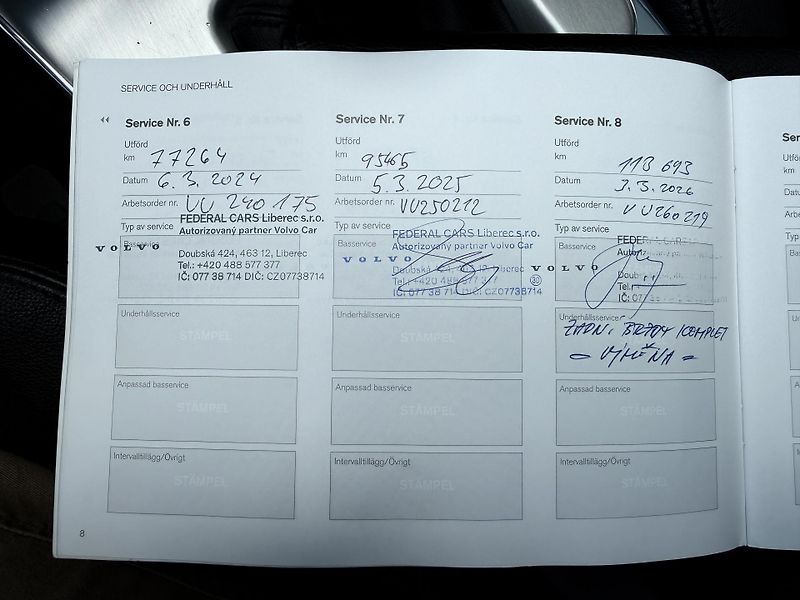 SERVICE OCH UNDERHÅLL
Service Nr. 6
Utförd
km 77264
Datum 6. 3. 2024
Arbetsorder nr. VU 240 175
Typ av service
FEDERAL CARS Liberec s.r.o.
Autorizovaný partner Volvo Car
Basservice
VOLVO
Doubská 424, 463 12, Liberec
Tel.: +420 488 577 377
IČ: 077 38 714 DIČ: CZ07738714
Underhållsservice
STÄMPEL
Anpassad basservice
STÄMPEL
Intervalltillägg/Övrigt
STÄMPEL
8
Service Nr. 7
Utförd
km 95465
Datum 5. 3. 2025
Arbetsorder nr. VU250212
Typ av service
FEDERAL CARS Liberec s.r.o.
Autorizovaný partner Volvo Car
Basservice
VOLVO
Doubská 424, 463 12, Liberec
Tel.: +420 488 577 377
IČ: 077 38 714 DIČ: CZ07738714
Underhållsservice
STÄMPEL
Anpassad basservice
STÄMPEL
Intervalltillägg/Övrigt
STÄMPEL
Service Nr. 8
Utförd
km 113 693
Datum 3. 3. 2026
Arbetsorder nr. VU260219
Typ av service
FEDERAL CARS
Basservice
VOLVO
Tel.:
IČ: 077
Underhållsservice
ZADNÍ BRZDY KOMPLET
- VÝMĚNA -
Anpassad basservice
STÄMPEL
Intervalltillägg/Övrigt
STÄMPEL
Utfö
km
Datu
Arbe
Typ